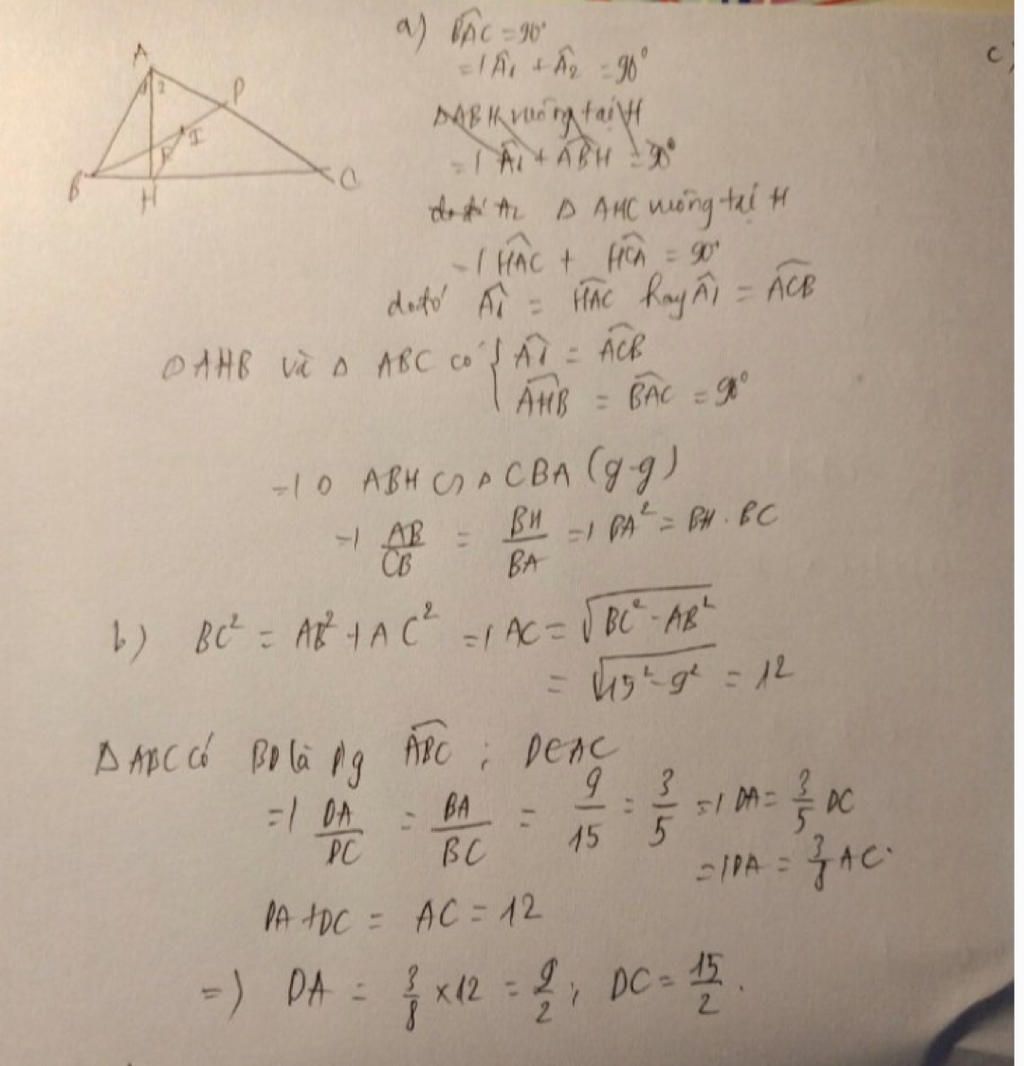 A
1 2
D
I
B
H
C
a) \widehat{BAC} = 90°
c)
=> \widehat{A1} + \widehat{A2} = 90°
△ABH vuông tại H
=> \widehat{A1} + \widehat{ABH} = 90°
A2 △ AHC vuông tại H
=> \widehat{HAC} + \widehat{HCA} = 90°
do đó \widehat{A1} = \widehat{HAC} hay \widehat{A1} = \widehat{ACB}
△AHB và △ ABC có { \widehat{A1} = \widehat{ACB}
\widehat{AHB} = \widehat{BAC} = 90°
=> △ ABH ∽ △ CBA (g-g)
=> \frac{AB}{CB} = \frac{BH}{BA} => BA² = BH . BC
b) BC² = AB² + AC² => AC = \sqrt{BC² - AB²}
= \sqrt{15² - 9²} = 12
△ABC có BD là pg \widehat{ABC} ; D∈AC
=> \frac{DA}{DC} = \frac{BA}{BC} = \frac{9}{15} = \frac{3}{5} => DA = \frac{3}{5} DC
=> DA = \frac{3}{8} AC.
DA + DC = AC = 12
=> DA = \frac{3}{8} × 12 = \frac{9}{2} ; DC = \frac{15}{2} .